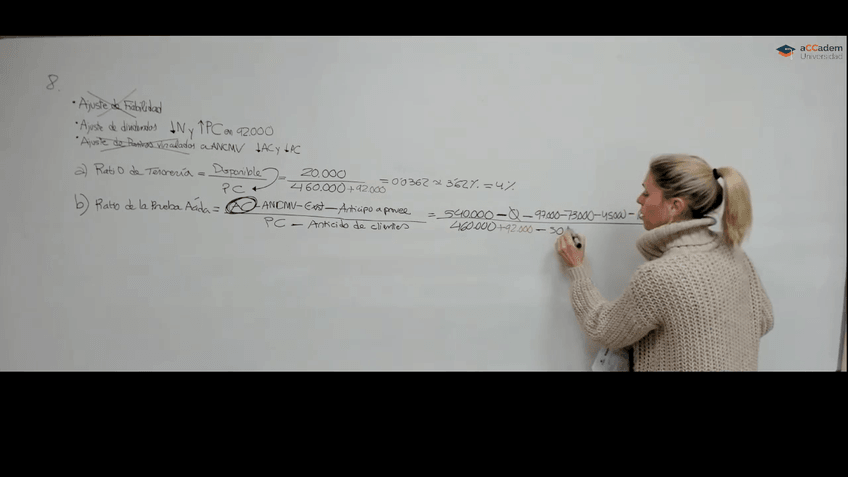 aCCadem
Universidad
8.
• Ajuste de Fiabilidad
• Ajuste de dividendos ↓N y ↑PC en 92.000
• Ajuste de vinculados a ANCMV ↓AC y ↓PC
a) Ratio de Tesorería = Disponible / PC = 20.000 / 460.000 + 92.000 = 0'0362 ≈ 3'62% = 4%
b) Ratio de la Prueba Ácida = AC - ANCMV - Exist - Anticipo a provee / PC - Anticido de clientes = 540.000 - 0 - 97.000 - 73.000 - 45.000 - / 460.000 + 92.000 - 30